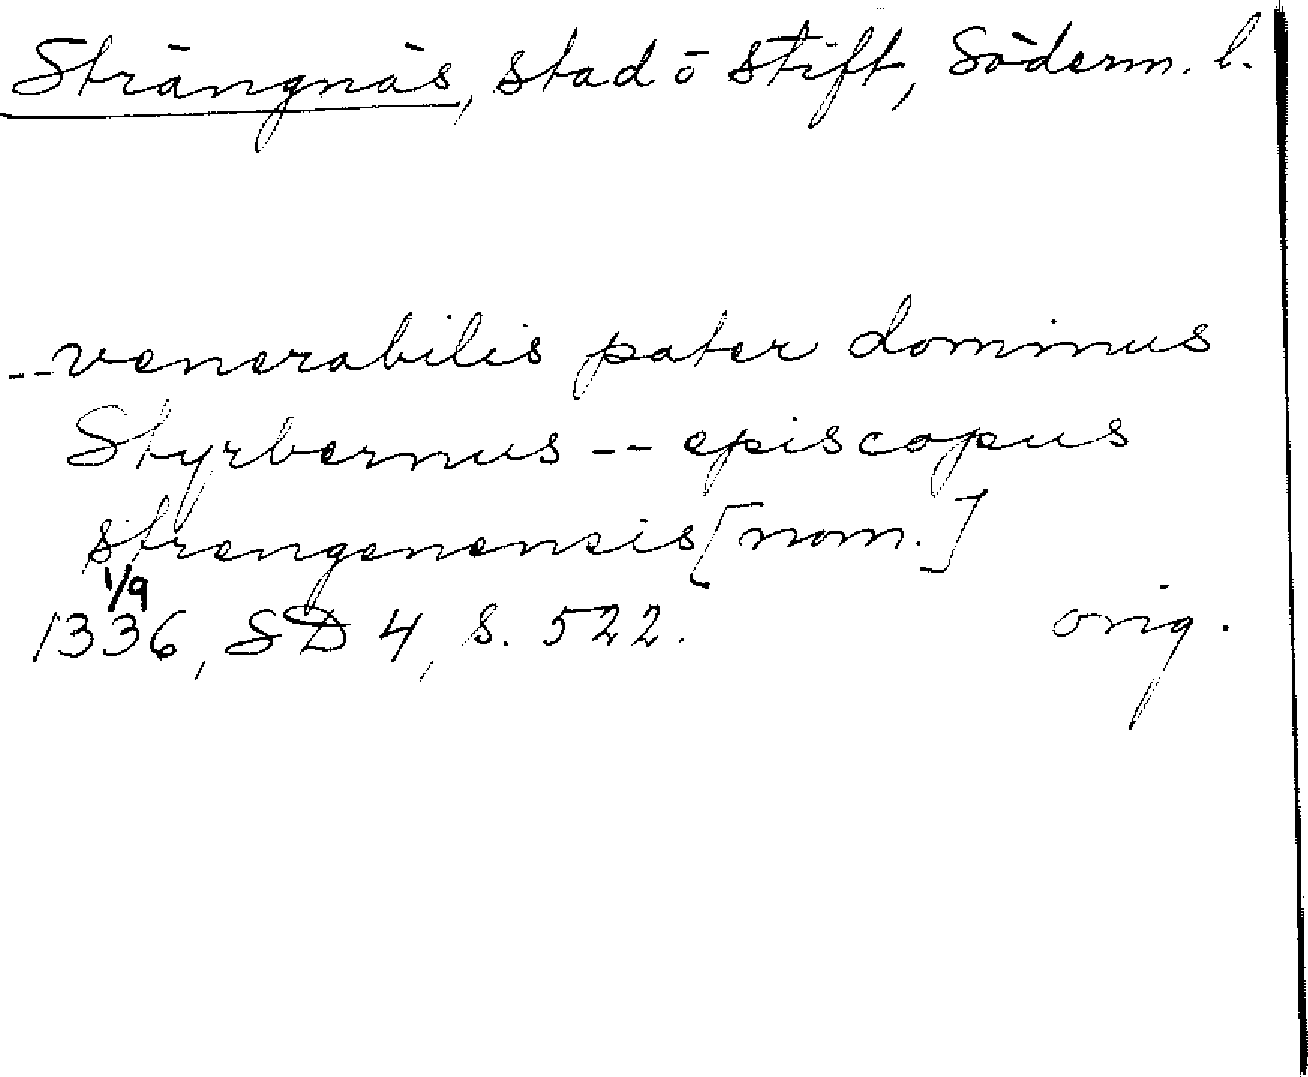 Strängnäs, stad o stift, Söderm. l.
-- venerabilis pater dominus
Styrbernus -- episcopus
strengenensis [nom.]
1/9
1336, SD 4, s. 522. orig.